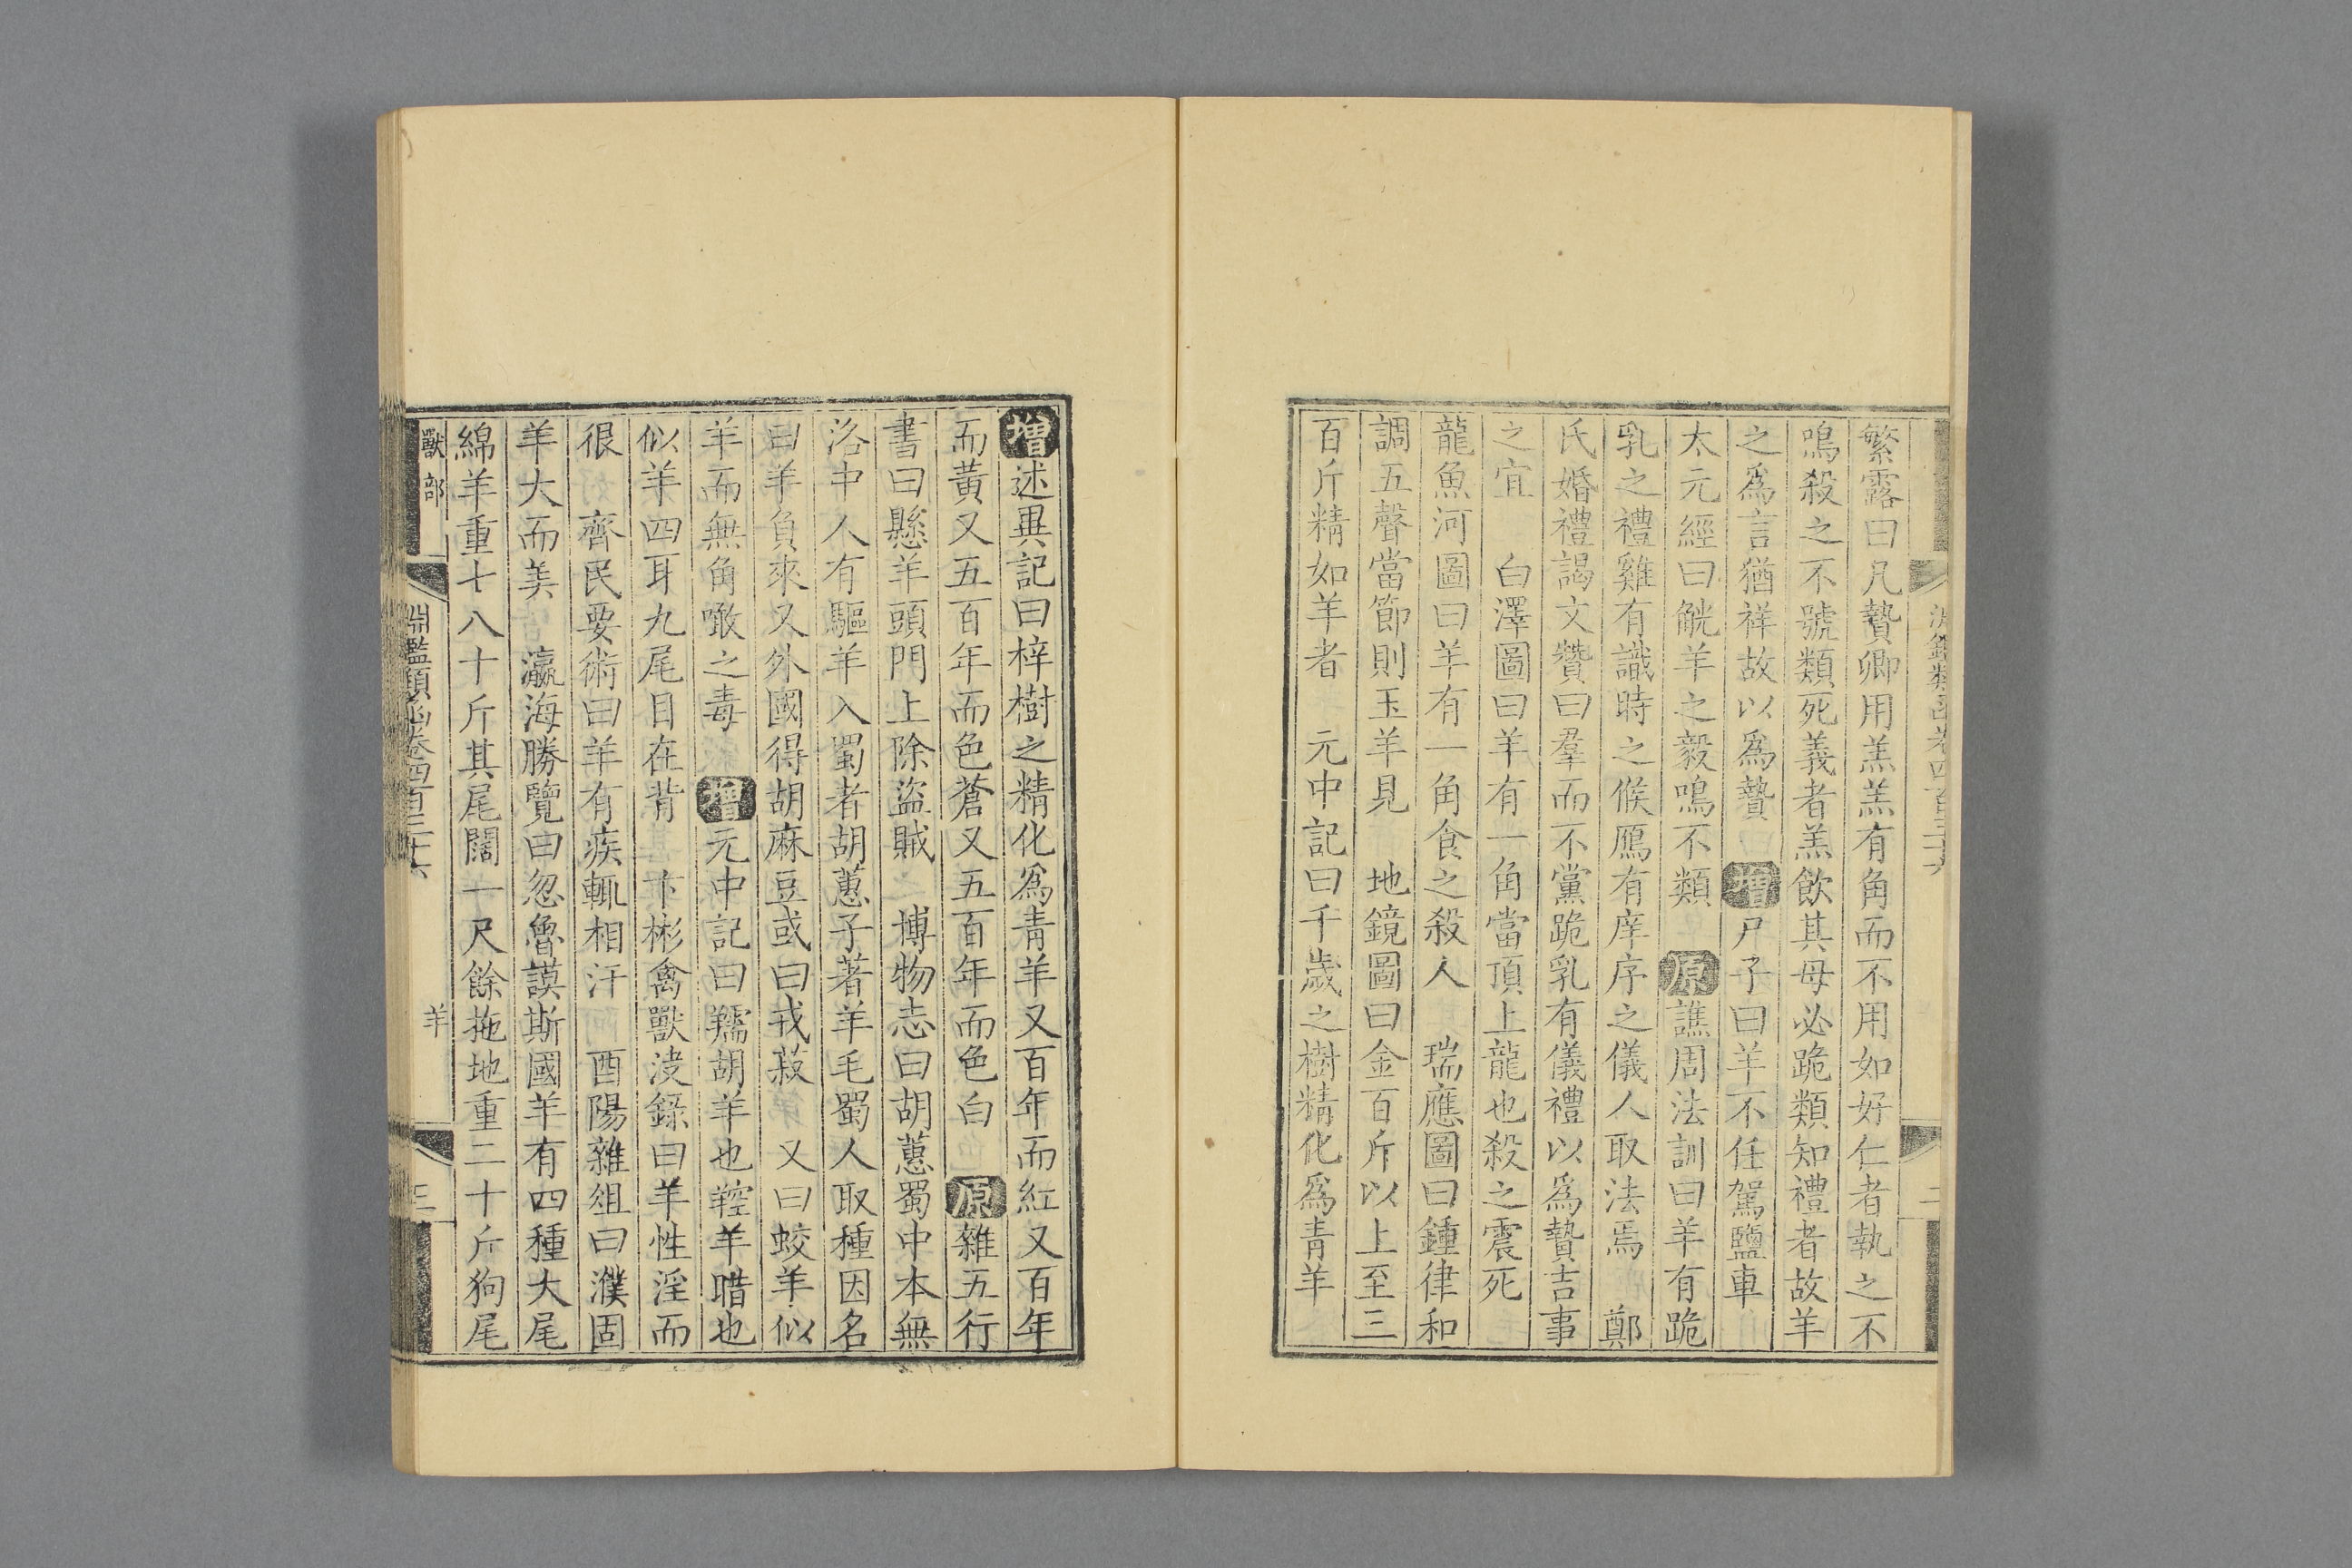 繁露曰凡贄卿用羔羔有角而不用如好仁者執之不
鳴殺之不號類死義者羔飲其母必跪類知禮者故羊
之爲言猶祥故以爲贄 增 尸子曰羊不任駕鹽車
太元經曰觥羊之毅鳴不類 原 譙周法訓曰羊有跪
乳之禮雞有識時之候鴈有庠序之儀人取法焉 鄭
氏婚禮謁文贊曰羣而不黨跪乳有儀禮以爲贄吉事
之宜 白澤圖曰羊有一角當頂上龍也殺之震死
龍魚河圖曰羊有一角食之殺人 瑞應圖曰鍾律和
調五聲當節則玉羊見 地鏡圖曰金百斤以上至三
百斤精如羊者 元中記曰千歲之樹精化爲青羊
增 述異記曰梓樹之精化爲青羊又百年而紅又百年
而黃又五百年而色蒼又五百年而色白 原 雜五行
書曰懸羊頭門上除盜賊 博物志曰胡蔥蜀中本無
洛中人有驅羊入蜀者胡蔥子著羊毛蜀人取種因名
曰羊負來又外國得胡麻豆或曰戎菽 又曰蛟羊似
羊而無角噉之毒 增 元中記曰羺胡羊也羫羊腊也
似羊四耳九尾目在背 卞彬禽獸決錄曰羊性淫而
很 齊民要術曰羊有疾輒相汙 酉陽雜俎曰濮固
羊大而美 瀛海勝覽曰忽魯謨斯國羊有四種大尾
綿羊重七八十斤其尾闊一尺餘拖地重二十斤狗尾
獸部
淵鑑類函卷四百三十六
羊
三